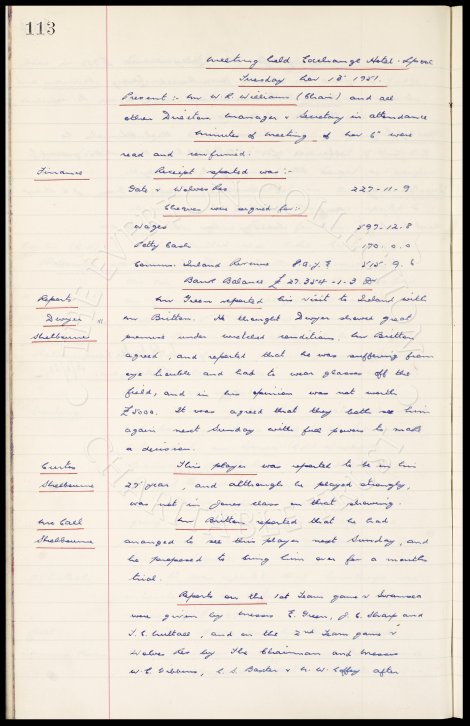 113
Meeting held Exchange Hotel. L'pool
Tuesday Nov 13 1951.
Present :- Mr W. R. Williams (Chair) and all
other Directors Manager & Secretary in attendance
Minutes of Meeting of Nov 6 were
read and confirmed.
Finance
Receipt reported was :-
Gate v Wolves Res 227-11-9
Cheques were signed for :-
Wages 597-12-8
Petty Cash 170.0.0
Comms. Inland Revenue P.A.Y.E. 515.9.6
Bank Balance £ 27.354-1-3 Dr
Reports
Dwyer
Shelbourne
Mr Green reported his visit to Ireland with
Mr Britton. He thought Dwyer showed great
promise under wretched conditions. Mr Britton
agreed, and reported that he was suffering from
eye trouble and had to wear glasses off the
field, and in his opinion was not worth
£5000. It was agreed that they both see him
again next Sunday with full powers to make
a decision.
Curtis
Shelbourne
This player was reported to be in his
year, and although he played strongly,
was not in Jones class on that showing.
Shelbourne
Mr Britton reported that he had
arranged to see this player next Sunday, and
he proposed to bring him over for a months
trial.
Reports on the 1st Team game v Swansea
were given by Messrs E. Green, J. C. Sharp and
and on the 2nd Team game v
Wolves Res by The Chairman and Messrs
W. C. Gibbins, C. S. Baxter & after
THE EVERTON COLLECTION